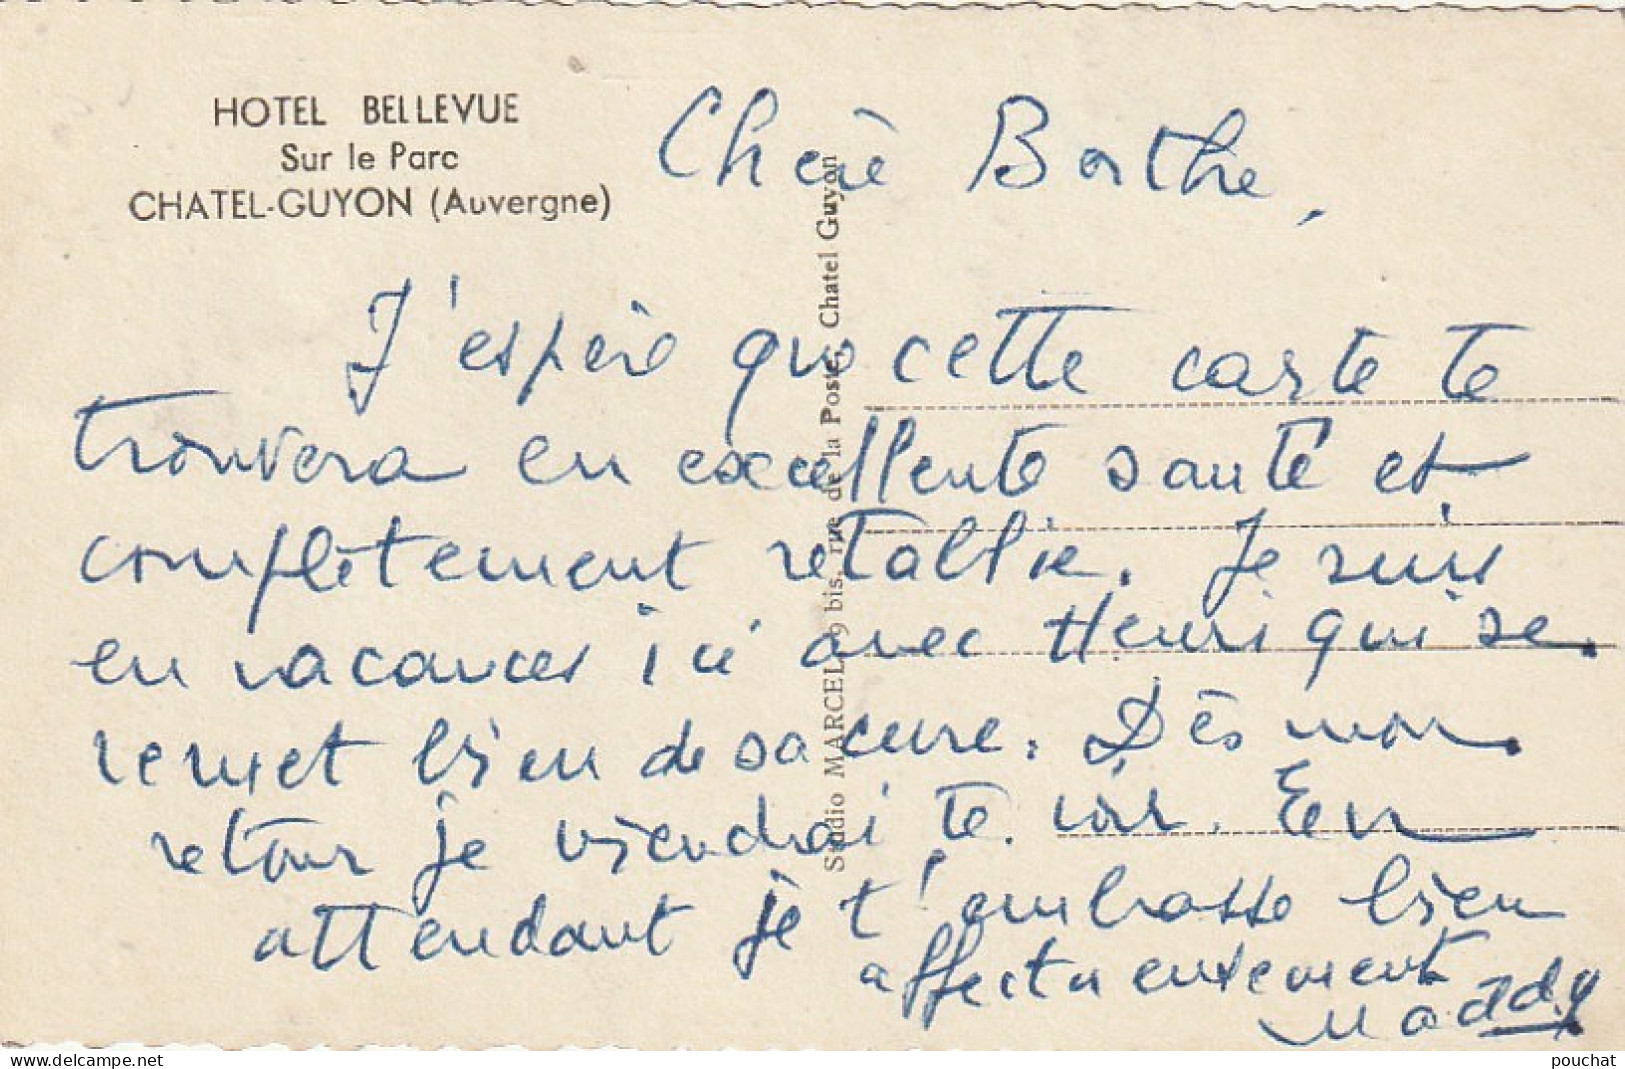 HOTEL BELLEVUE
Sur le Parc
CHATEL-GUYON (Auvergne)
Chère Berthe,
J'espère que cette carte te
trouvera en excellente santé et
complètement rétablie. Je suis
en vacances ici avec Henri qui se
remet bien de sa cure. Dès mon
retour je viendrai te voir. En
attendant je t'embrasse bien
affectueusement
Maddy
Studio MARCEL, 9 bis, rue de la Poste, Chatel Guyon
www.delcampe.net
pouchat